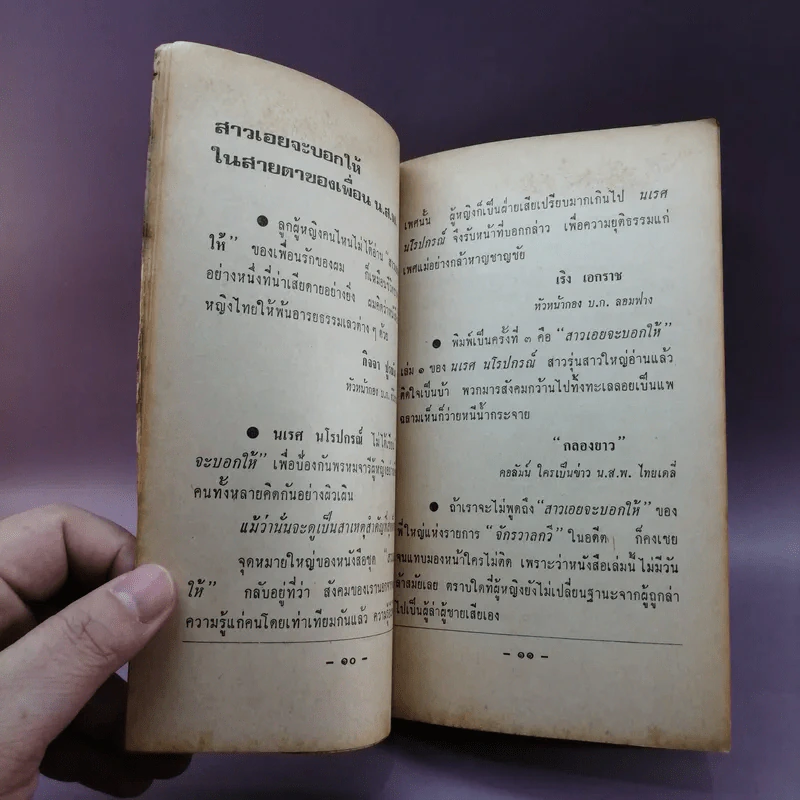 สาวเอยจะบอกให้
ในสายตาของเพื่อน น.ส.พ.
● ลูกผู้หญิงคนไหนไม่ได้อ่าน
ให้" ของเพื่อนรักของผม
อย่างหนึ่งที่น่าเสียดายอย่างยิ่ง
หญิงไทยให้พ้นอารยธรรมเลวต่าง ๆ ด้วย
กิจจา
หัวหน้ากอง บ.ก.
● นเรศ นโรปกรณ์ ไม่ได้เขียน
จะบอกให้" เพื่อป้องกันพรหมจารีผู้หญิง
คนทั้งหลายคิดกันอย่างผิวเผิน
แม้ว่านั่นจะดูเป็นสาเหตุสำคัญ
จุดหมายใหญ่ของหนังสือชุด
ให้" กลับอยู่ที่ว่า สังคมของเรา
ความรู้แก่คนโดยเท่าเทียมกันแล้ว
- ๑๐ -
เพศนั้น ผู้หญิงก็เป็นฝ่ายเสียเปรียบมากเกินไป นเรศ
นโรปกรณ์ จึงรับหน้าที่บอกกล่าว เพื่อความยุติธรรมแก่
เพศแม่อย่างกล้าหาญชาญชัย
เริง เอกราช
หัวหน้ากอง บ.ก. ลอมฟาง
● พิมพ์เป็นครั้งที่ ๓ คือ "สาวเอยจะบอกให้"
เล่ม ๑ ของ นเรศ นโรปกรณ์ สาวรุ่นสาวใหญ่อ่านแล้ว
ติดใจเป็นบ้า พวกมารสังคมกว้านไปทิ้งทะเลลอยเป็นแพ
ฉลามเห็นก็ว่ายหนีน้ำกระจาย
"กลองยาว"
คอลัมน์ ใครเป็นข่าว น.ส.พ. ไทยเดลี่
● ถ้าเราจะไม่พูดถึง "สาวเอยจะบอกให้" ของ
พี่ใหญ่แห่งรายการ "จักรวาลกวี" ในอดีต ก็คงเชย
จนแทบมองหน้าใครไม่ติด เพราะว่าหนังสือเล่มนี้ ไม่มีวัน
ล้าสมัยเลย ตราบใดที่ผู้หญิงยังไม่เปลี่ยนฐานะจากผู้ถูกล่า
ไปเป็นผู้ล่าผู้ชายเสียเอง
- ๑๑ -